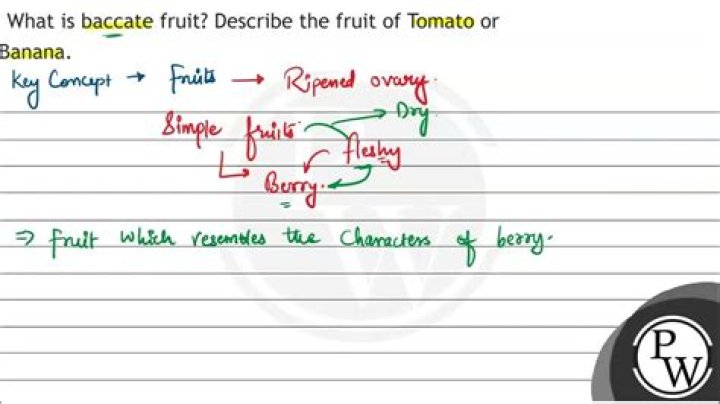 What is baccate fruit? Describe the fruit of Tomato or
Banana.
Key Concept → Fruits → Ripened ovary.
Simple fruits → Dry
fleshy
Berry.
⇒ Fruit which resembles the characters of berry.
P
W